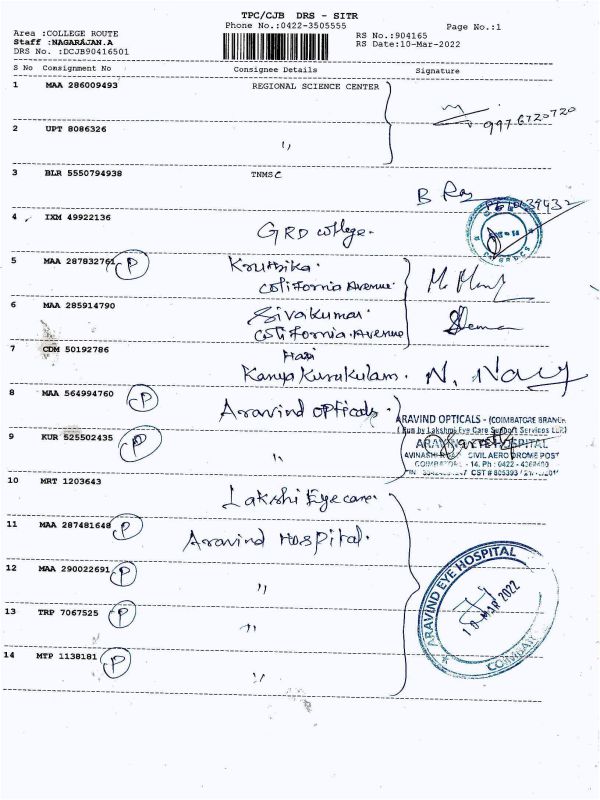 TPC/CJB DRS - SITR
Phone No.:0422-3505555
Page No.:1
Area :COLLEGE ROUTE
RS No.:904165
Staff :NAGARAJAN.A
RS Date:10-Mar-2022
DRS No. :DCJB90416501
S No Consignment No Consignee Details Signature
1 MAA 286009493 REGIONAL SCIENCE CENTER
9976720720
2 UPT 8086326 "
3 BLR 5550794938 TNMSC
B Raj
4 IXM 49922136 GRD college.
5 MAA 287832761 P Kruthika.
California Avenue.
6 MAA 285914790 Sivakumar.
California.Avenue
7 CDM 50192786 Hari
Kanya Kurukulam.
N.
8 MAA 564994760 P Aravind opticals.
ARAVIND OPTICALS - (COIMBATORE BRANCH
( Run by Lakshmi Eye Care Support Services LLP)
9 KUR 525502435 P "
ARAVIND EYE HOSPITAL
AVINASHI ROAD CIVIL AERODROME POST
COIMBATORE - 14. Ph : 0422 -
CST # 805393
10 MRT 1203643 Lakshi Eye care.
11 MAA 287481648 P Aravind Hospital.
12 MAA 290022691 P "
ARAVIND EYE HOSPITAL
10 MAR 2022
13 TRP 7067525 P "
14 MTP 1138181 P "